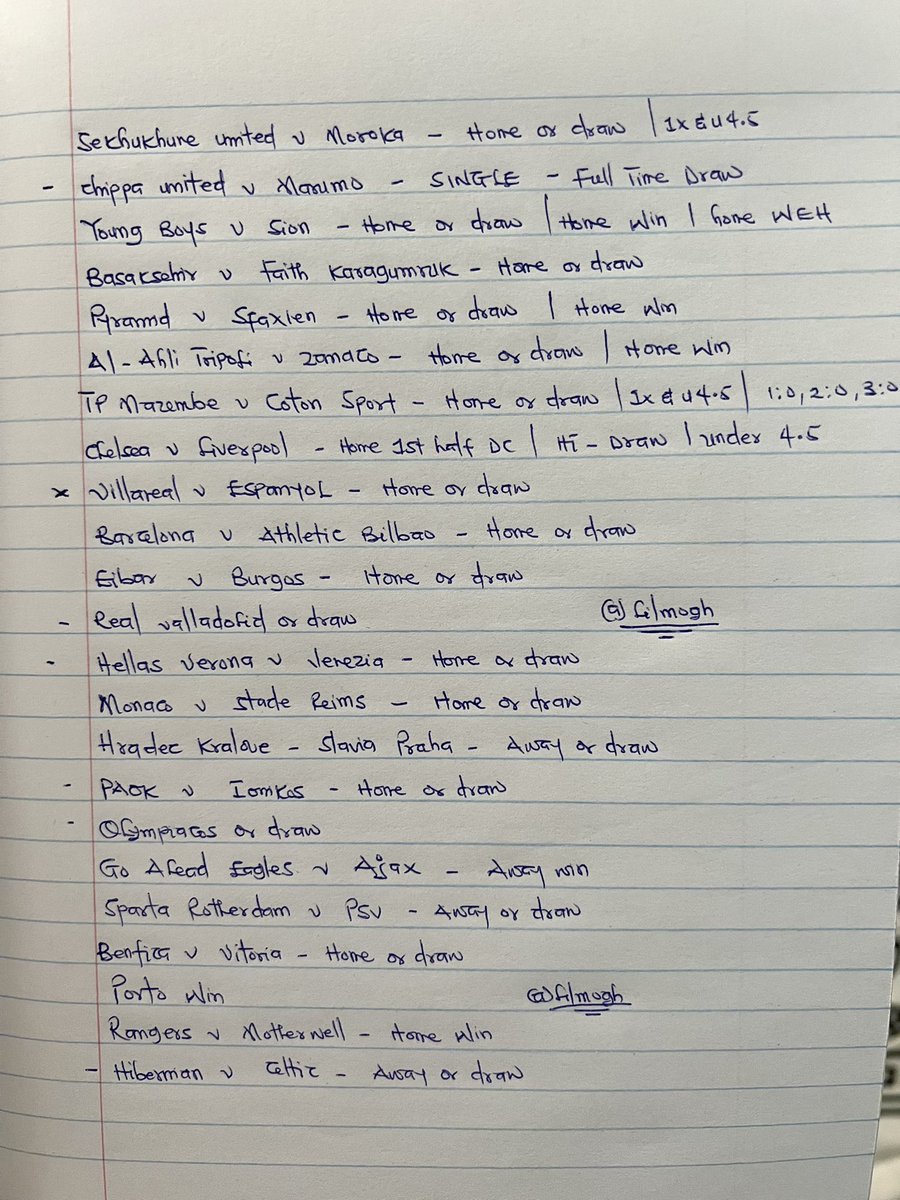 Sekhukhune united v Moroka - Home or draw | 1x & u4.5
- Chippa united v Marumo - SINGLE - Full Time Draw
Young Boys v Sion - Home or draw | Home Win | home WEH
Basaksehir v Faith Karagumruk - Home or draw
Pyramid v Sfaxien - Home or draw | Home Win
Al-Ahli Tripoli v Zanaco - Home or draw | Home Win
TP Mazembe v Coton Sport - Home or draw | 1x & u4.5 | 1:0, 2:0, 3:0
Chelsea v Liverpool - Home 1st half DC | HT - Draw | under 4.5
x Villareal v ESPANYOL - Home or draw
Barcelona v Athletic Bilbao - Home or draw
Eibar v Burgos - Home or draw
- Real valladolid or draw
@lilmogh
- Hellas Verona v Venezia - Home or draw
Monaco v Stade Reims - Home or draw
Hradec Kralove - Slavia Praha - Away or draw
- PAOK v Ionikos - Home or draw
- Olympiacos or draw
Go Ahead Eagles v Ajax - Away win
Sparta Rotherdam v PSV - Away or draw
Benfica v Vitoria - Home or draw
Porto Win
@lilmogh
Rangers v Motherwell - Home Win
- Hiberman v Celtic - Away or draw